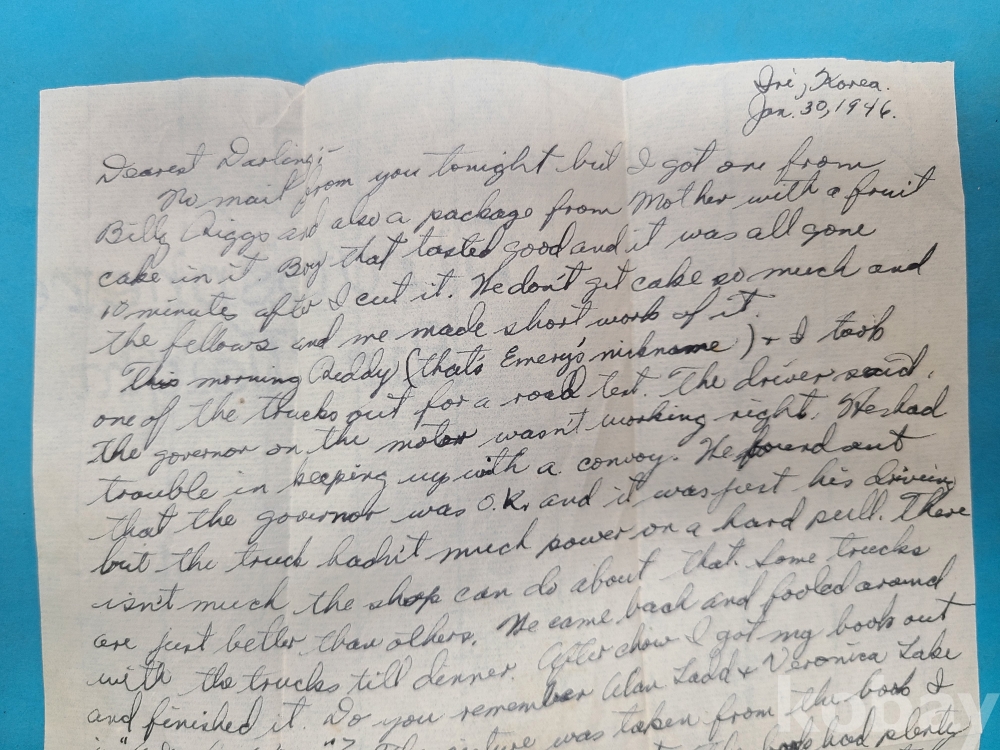 Iri, Korea.
Jan. 30, 1946.
Dearest Darling:-
No mail from you tonight but I got one from
Billy Riggs and also a package from Mother with a fruit
cake in it. Boy that tasted good and it was all gone
10 minutes after I cut it. We don't get cake so much and
the fellows and me made short work of it.
This morning Reddy (that's Emery's nickname) + I took
one of the trucks out for a road test. The driver said
the governor on the motor wasn't working right. He had
trouble in keeping up with a convoy. We found out
that the governor was O.K. and it was just his driving
but the truck hadn't much power on a hard pull. There
isn't much the shop can do about that. Some trucks
are just better than others. We came back and fooled around
with the trucks till dinner. After chow I got my book out
and finished it. Do you remember Alan Ladd + Veronica Lake
in " "? The picture was taken from the book I
had plenty
kobay